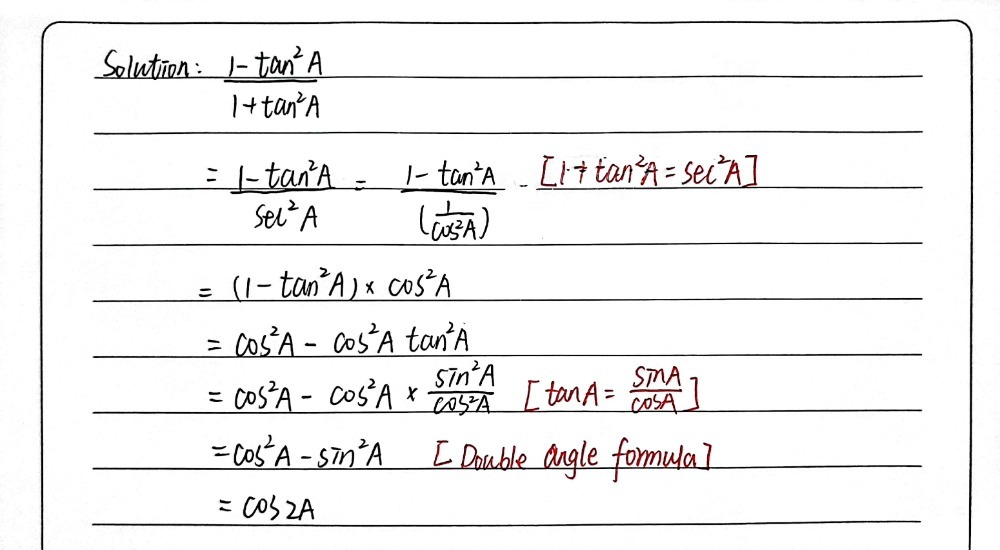 Solution: (1 - tan²A)/(1 + tan²A)
= (1 - tan²A)/(sec²A) = (1 - tan²A)/(1/cos²A) - [1 + tan²A = sec²A]
= (1 - tan²A) × cos²A
= cos²A - cos²A tan²A
= cos²A - cos²A × sin²A/cos²A [tanA = sinA/cosA]
= cos²A - sin²A [Double angle formula]
= cos2A